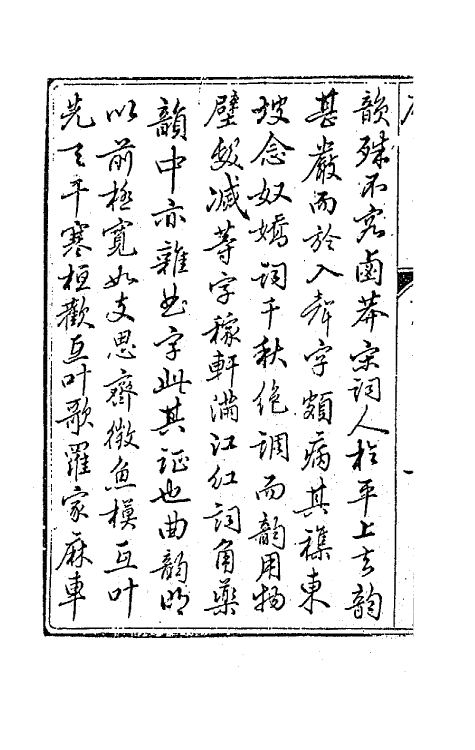 韻殊不容鹵莽宋詞人於平上去韵
甚嚴而於入聲字頗病其穕東
坡念奴嬌詞千秋絶調而韵用物
壁雪滅等字稼軒滿江紅詞角藥
韻中亦雜出字此其证也曲韵明
以前極寬如支思齊微魚模互叶
先天干寒桓歡互叶歌羅家麻車